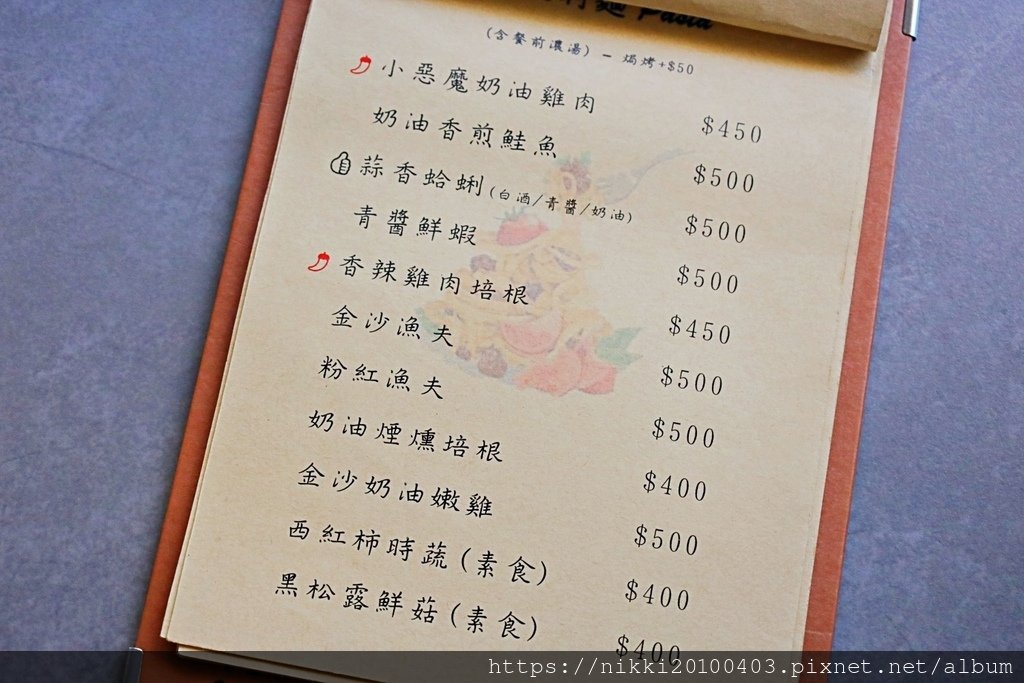 麵 Pasta
(含餐前濃湯) - 焗烤+$50
小惡魔奶油雞肉 $450
奶油香煎鮭魚 $500
蒜香蛤蜊(白酒/青醬/奶油) $500
青醬鮮蝦 $500
香辣雞肉培根 $450
金沙漁夫 $500
粉紅漁夫 $500
奶油煙燻培根 $400
金沙奶油嫩雞 $500
西紅柿時蔬(素食) $400
黑松露鮮菇(素食) $400
https://nikki20100403.pixnet.net/album